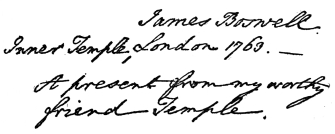 James Boswell.
Inner Temple, London 1763. —
A present from my worthy
friend Temple.